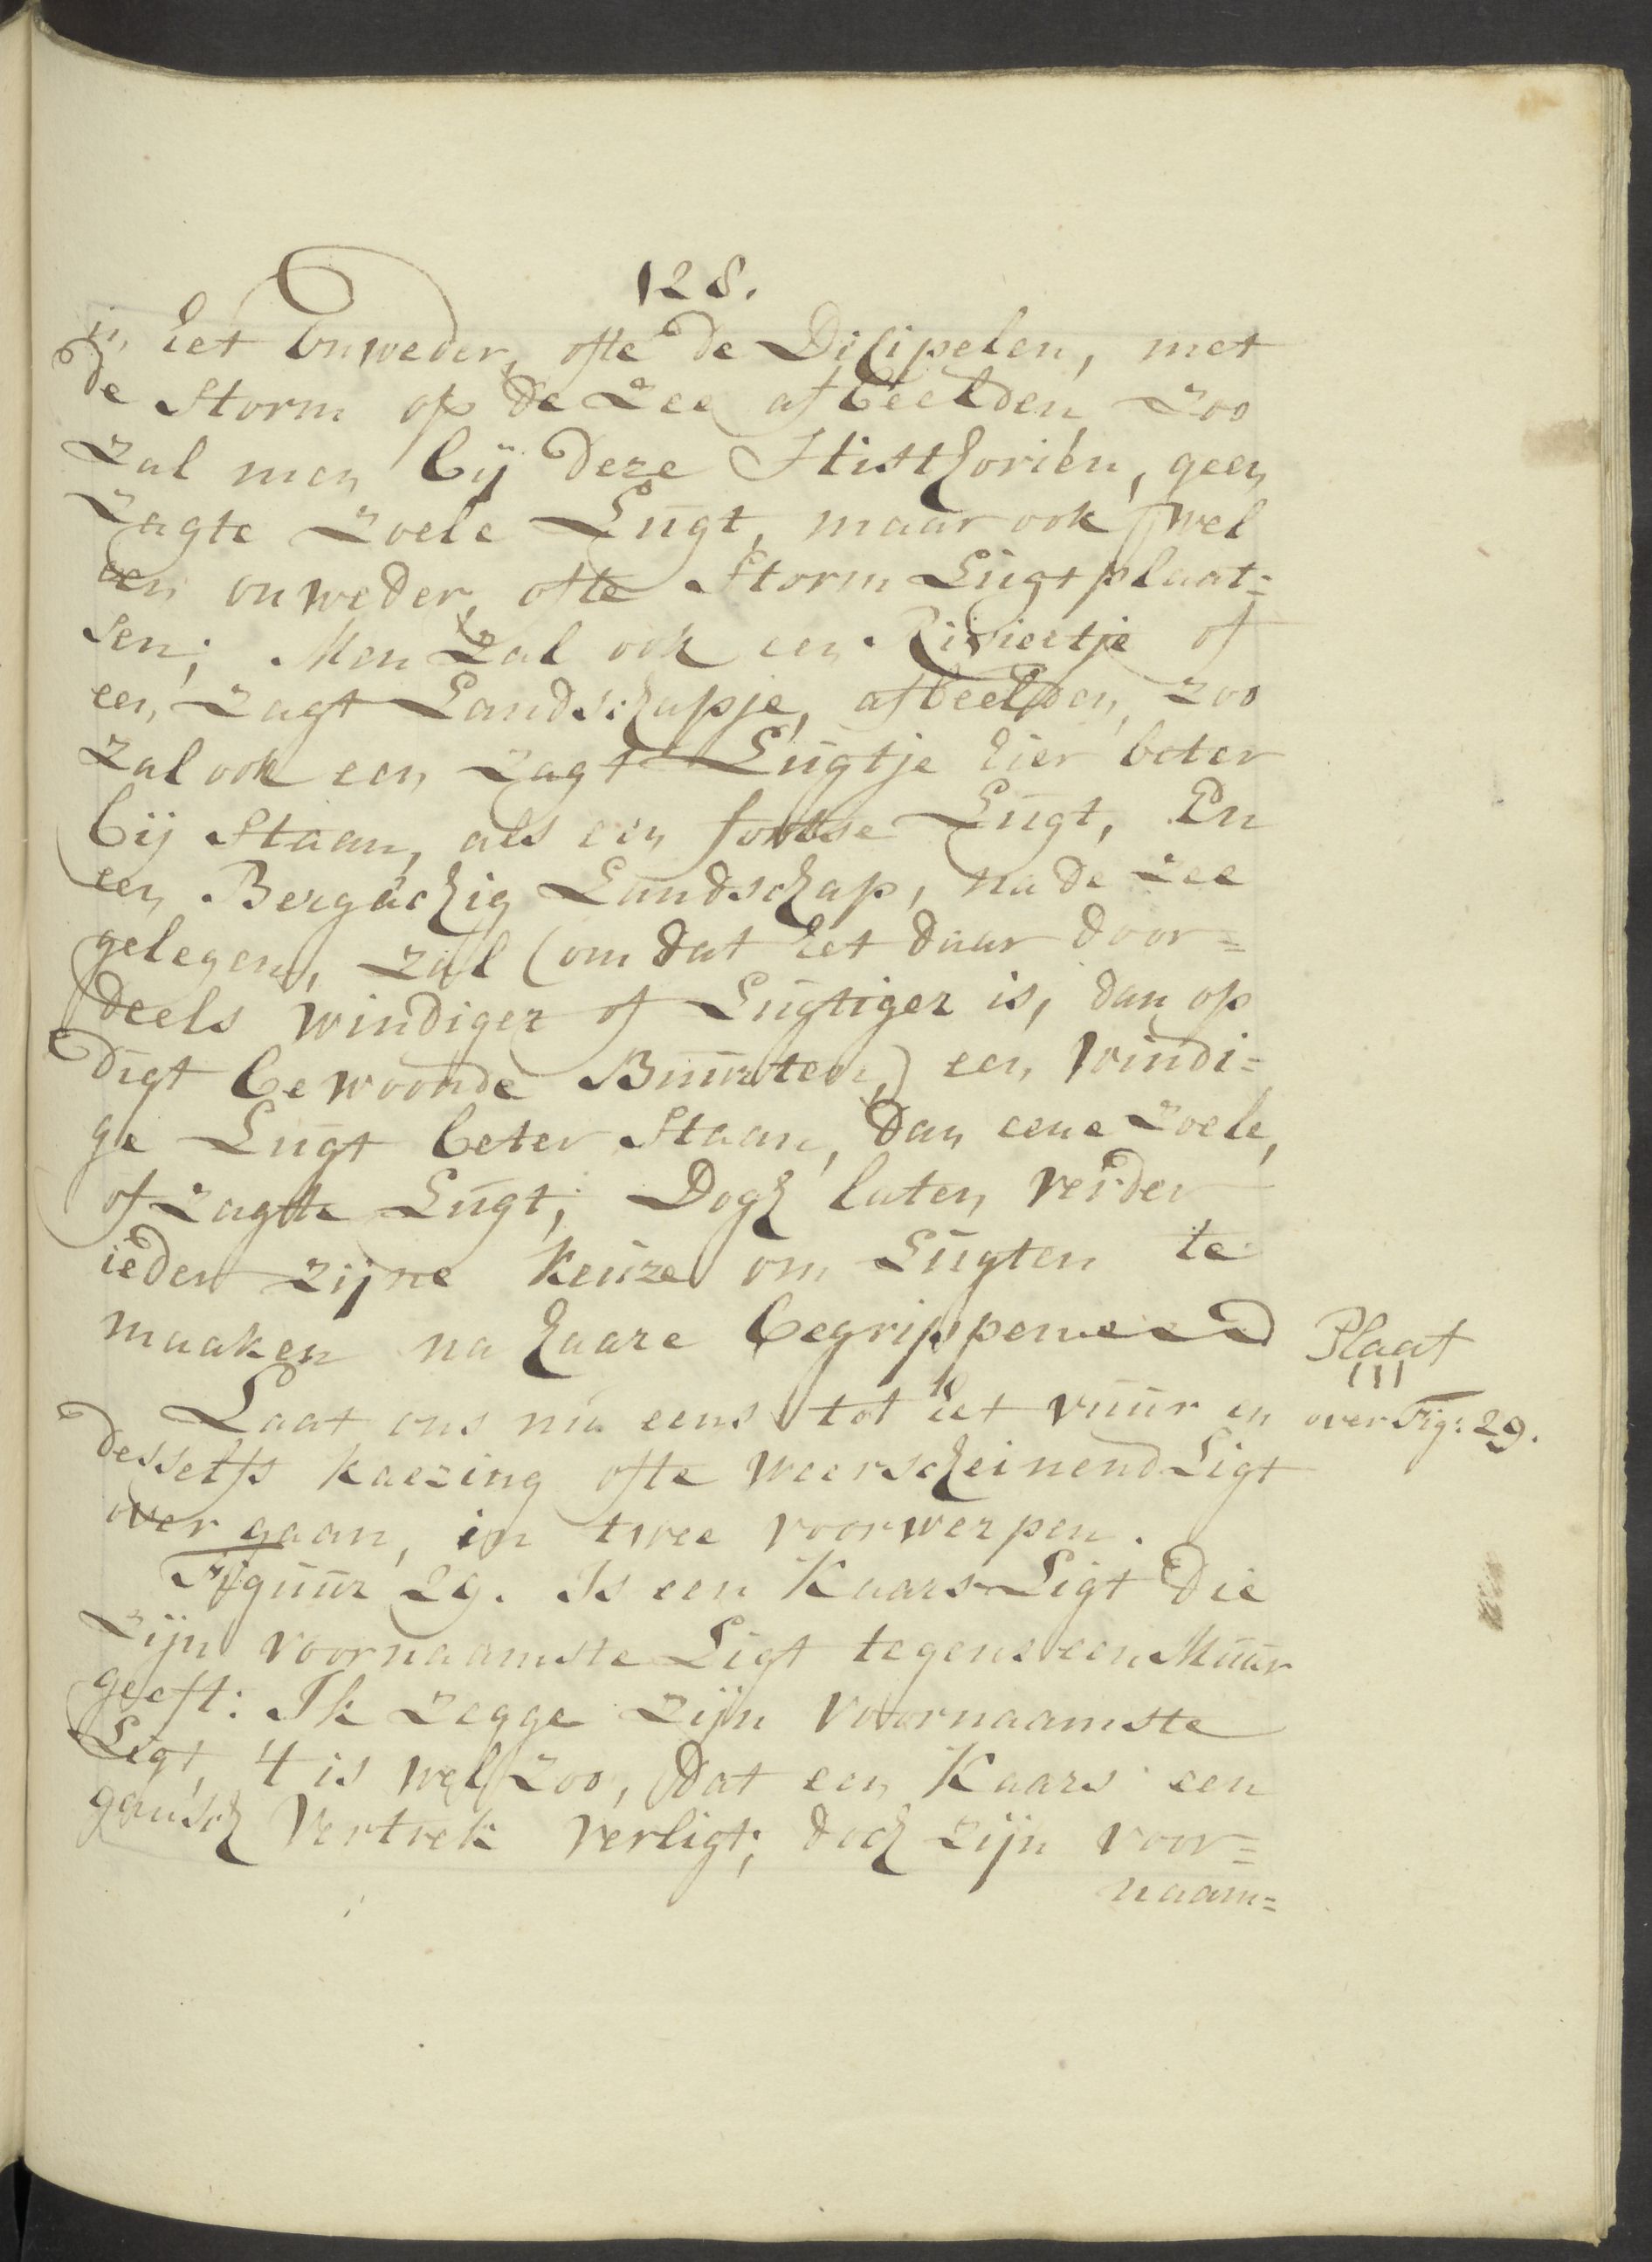 128.
in het Onweder, ofte de Discipelen, met
de Storm op de Zee afbeelden, zoo
zal men bij deze Histhoriën, geen
zagte zoele Lugt, maar ook wel
een onweder, ofte Storm Lugt plaat=
sen; Men zal ook een Riviertje of
een zagt Landschapje, afbeelden, zoo
zal ook een zagt Lugtje hier beter
bij Staan, als een fortse Lugt, En
een Bergachig Landschap, na de zee
gelegen, zal (om dat het daar door=
deels windiger of Lugtiger is, dan op
digt bewoonde Buurten,) een windi=
ge Lugt beter Staan, dan eene zoele,
of zagte Lugt; Dogh laten verder
ieder zijne keuze om Lugten te
maaken na haare begrippen
Plaat
III
Laat ons nu eens tot het vuur en
over Fig: 29.
desselfs kaezing ofte weerscheinend Ligt
over gaan, in twee voorwerpen.
Figuur 29. Is een Kaars Ligt die
zijn voornaamste Ligt tegens een Muur
geeft: Ik zegge zijn voornaamste
Ligt, 't is wel zoo, dat een Kaars een
gansch Vertrek verligt; doch zijn voor=
naam=